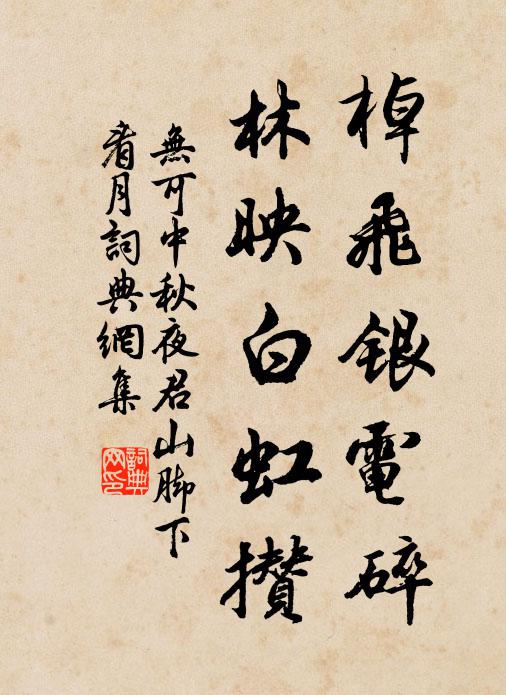 棹飛銀電碎
林映白虹攅
無可中秋夜君山脚下
看月詞典網集
詞典網印